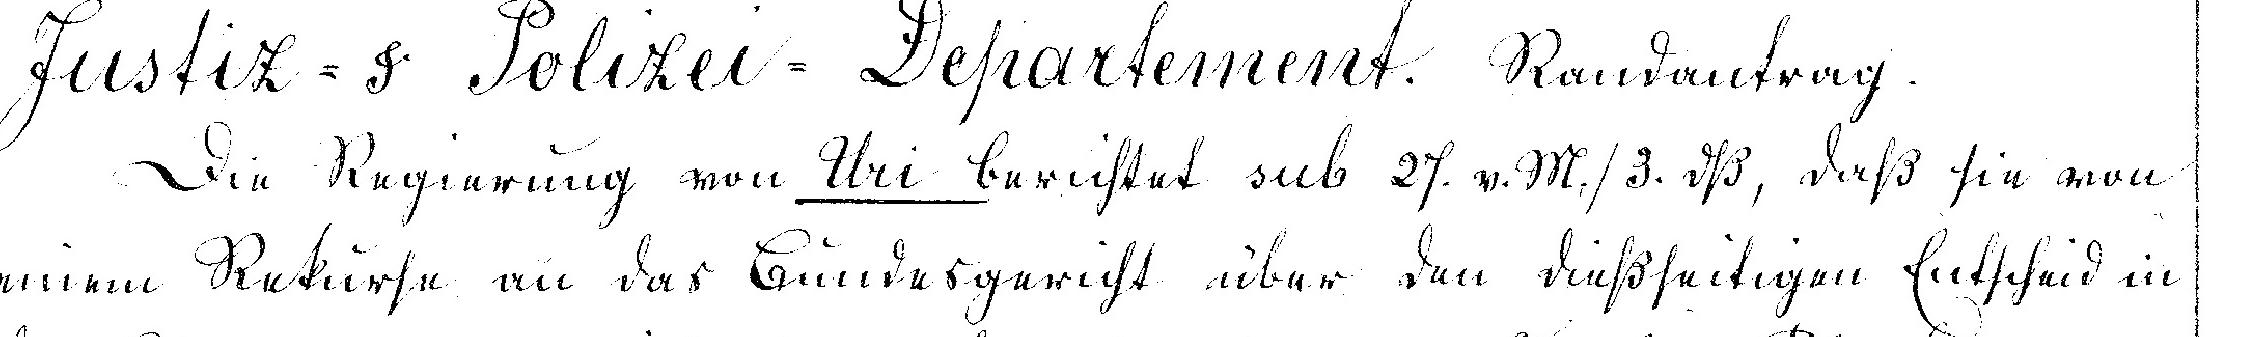 Justiz- & Polizei-Departement. Randantrag.
Die Regierung von Uri berichtet sub 27. v. M./3. dß, daß sie von
einem Rekurse an das Bundesgericht über den dießseitigen Entscheid in